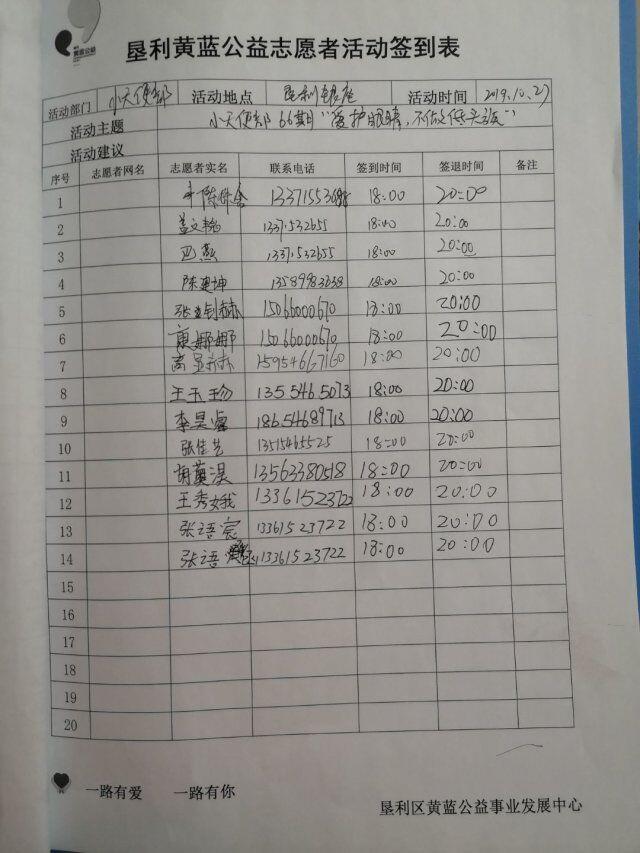 黄蓝公益
垦利黄蓝公益志愿者活动签到表
活动部门 小天使部 活动地点 垦利银座 活动时间 2019.10.27
活动主题 小天使部66期"爱护眼睛,不做低头族"
活动建议
序号 志愿者网名 志愿者实名 联系电话 签到时间 签退时间 备注
1 18:00 20:00
2 盖文赫 1337.532655 18:00 20:00
3 1337.532655 18:00 20:00
4 陈建坤 13589983638 18:00 20:00
5 15066000670 18:00 20:00
6 康娜娜 15066000670 18:00 20:00
7 15954667160 18:00 20:00
8 王玉珍 135.546.5073 18:00 20:00
9 李昊睿 18654689713 18:00 20:00
10 张佳艺 13515465525 18:00 20:00
11 13563380518 18:00 20:00
12 王秀娥 13361523722 18:00 20:00
13 张语宸 13361523722 18:00 20:00
14 张语 13361523722 18:00 20:00
15
16
17
18
19
20
一路有爱 一路有你
垦利区黄蓝公益事业发展中心